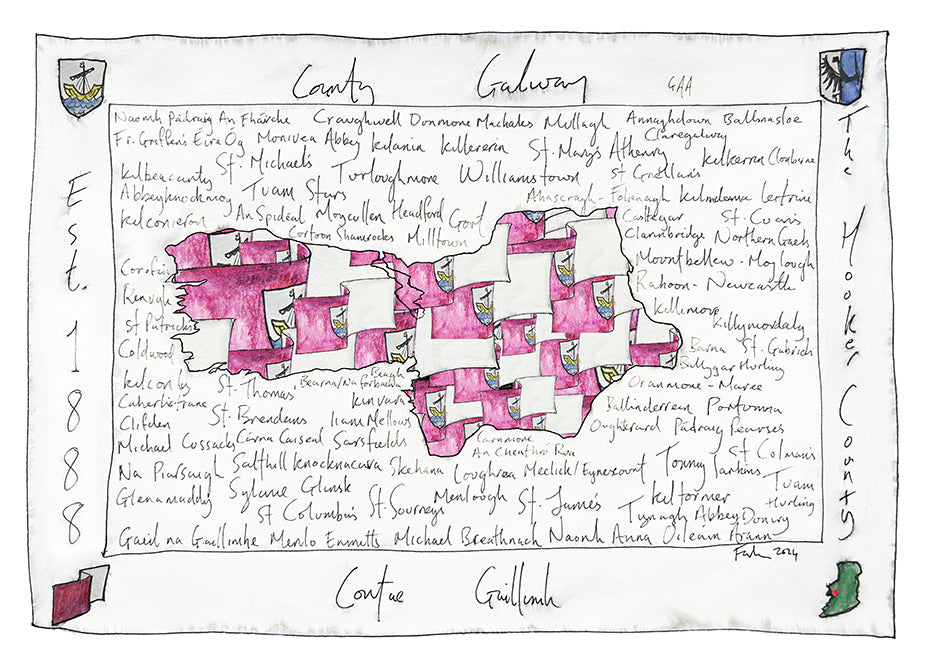 County Galway GAA
Naomh Pádraig An Fháirche Craughwell Dunmore Machales Mullagh Annaghdown Ballinasloe
Fr. Griffin's Éire Óg Monivea Abbey Killererin St. Mary's Athenry Claregalway
St. Michael's Turloughmore Williamstown St Grellan's Kilkerrin Clonberne
Kilbeacanty
Abbeyknockmoy Tuam Stars Ahascragh - Fohenagh Kilnadeema Leitrim
Kilconieron An Spidéal Moycullen Headford Gort Castlegar
Cortoon Shamrocks Milltown Clarinbridge Northern Gaels
Corofin Mountbellew - Moylough
Renvyle Rahoon - Newcastle
St Patricks Killimor
Coldwood Killymordaly
Barna St. Gabriels
Ballygar Hurling
Kilconly St. Thomas Bearna/Na Forbacha Beagh Oranmore - Maree
Caherlistrane Kinvara Ballinderreen Portumna
Clifden St. Brendans Liam Mellows Oughterard Pádraig Pearses
Michael Cussacks Carna Caiseal Sarsfields Carnmore
An Cheathrú Rua St Colman's
Na Piarsaigh Salthill Knocknacarra Skehana Loughrea Meelick/Eyrecourt Tommy Larkins
Glenamaddy Sylane Glinsk Tuam Hurling
St Columba's Menlough St. James Kiltormer
Tynagh Abbey Duniry
Gaeil na Gaillimhe Menlo Emmetts Michael Breathnach Naomh Anna Oileáin Árann
2024
Est. 1888
The Hooker County
Contae Gaillimh